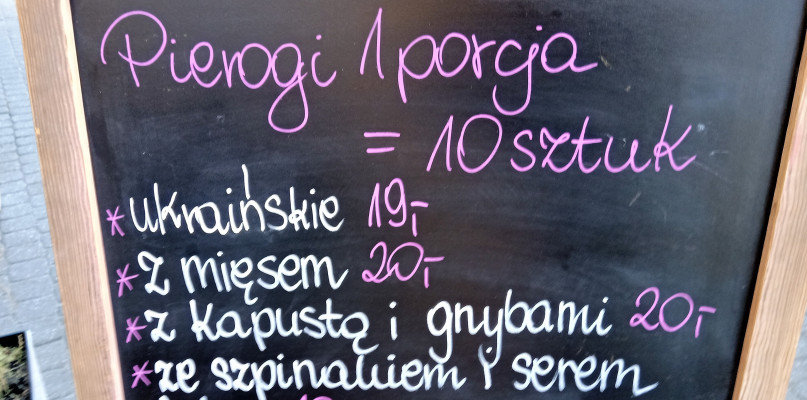 Pierogi 1 porcja
= 10 sztuk
* ukraińskie 19,-
* z mięsem 20,-
* z kapustą i grzybami 20,-
* ze szpinakiem i serem